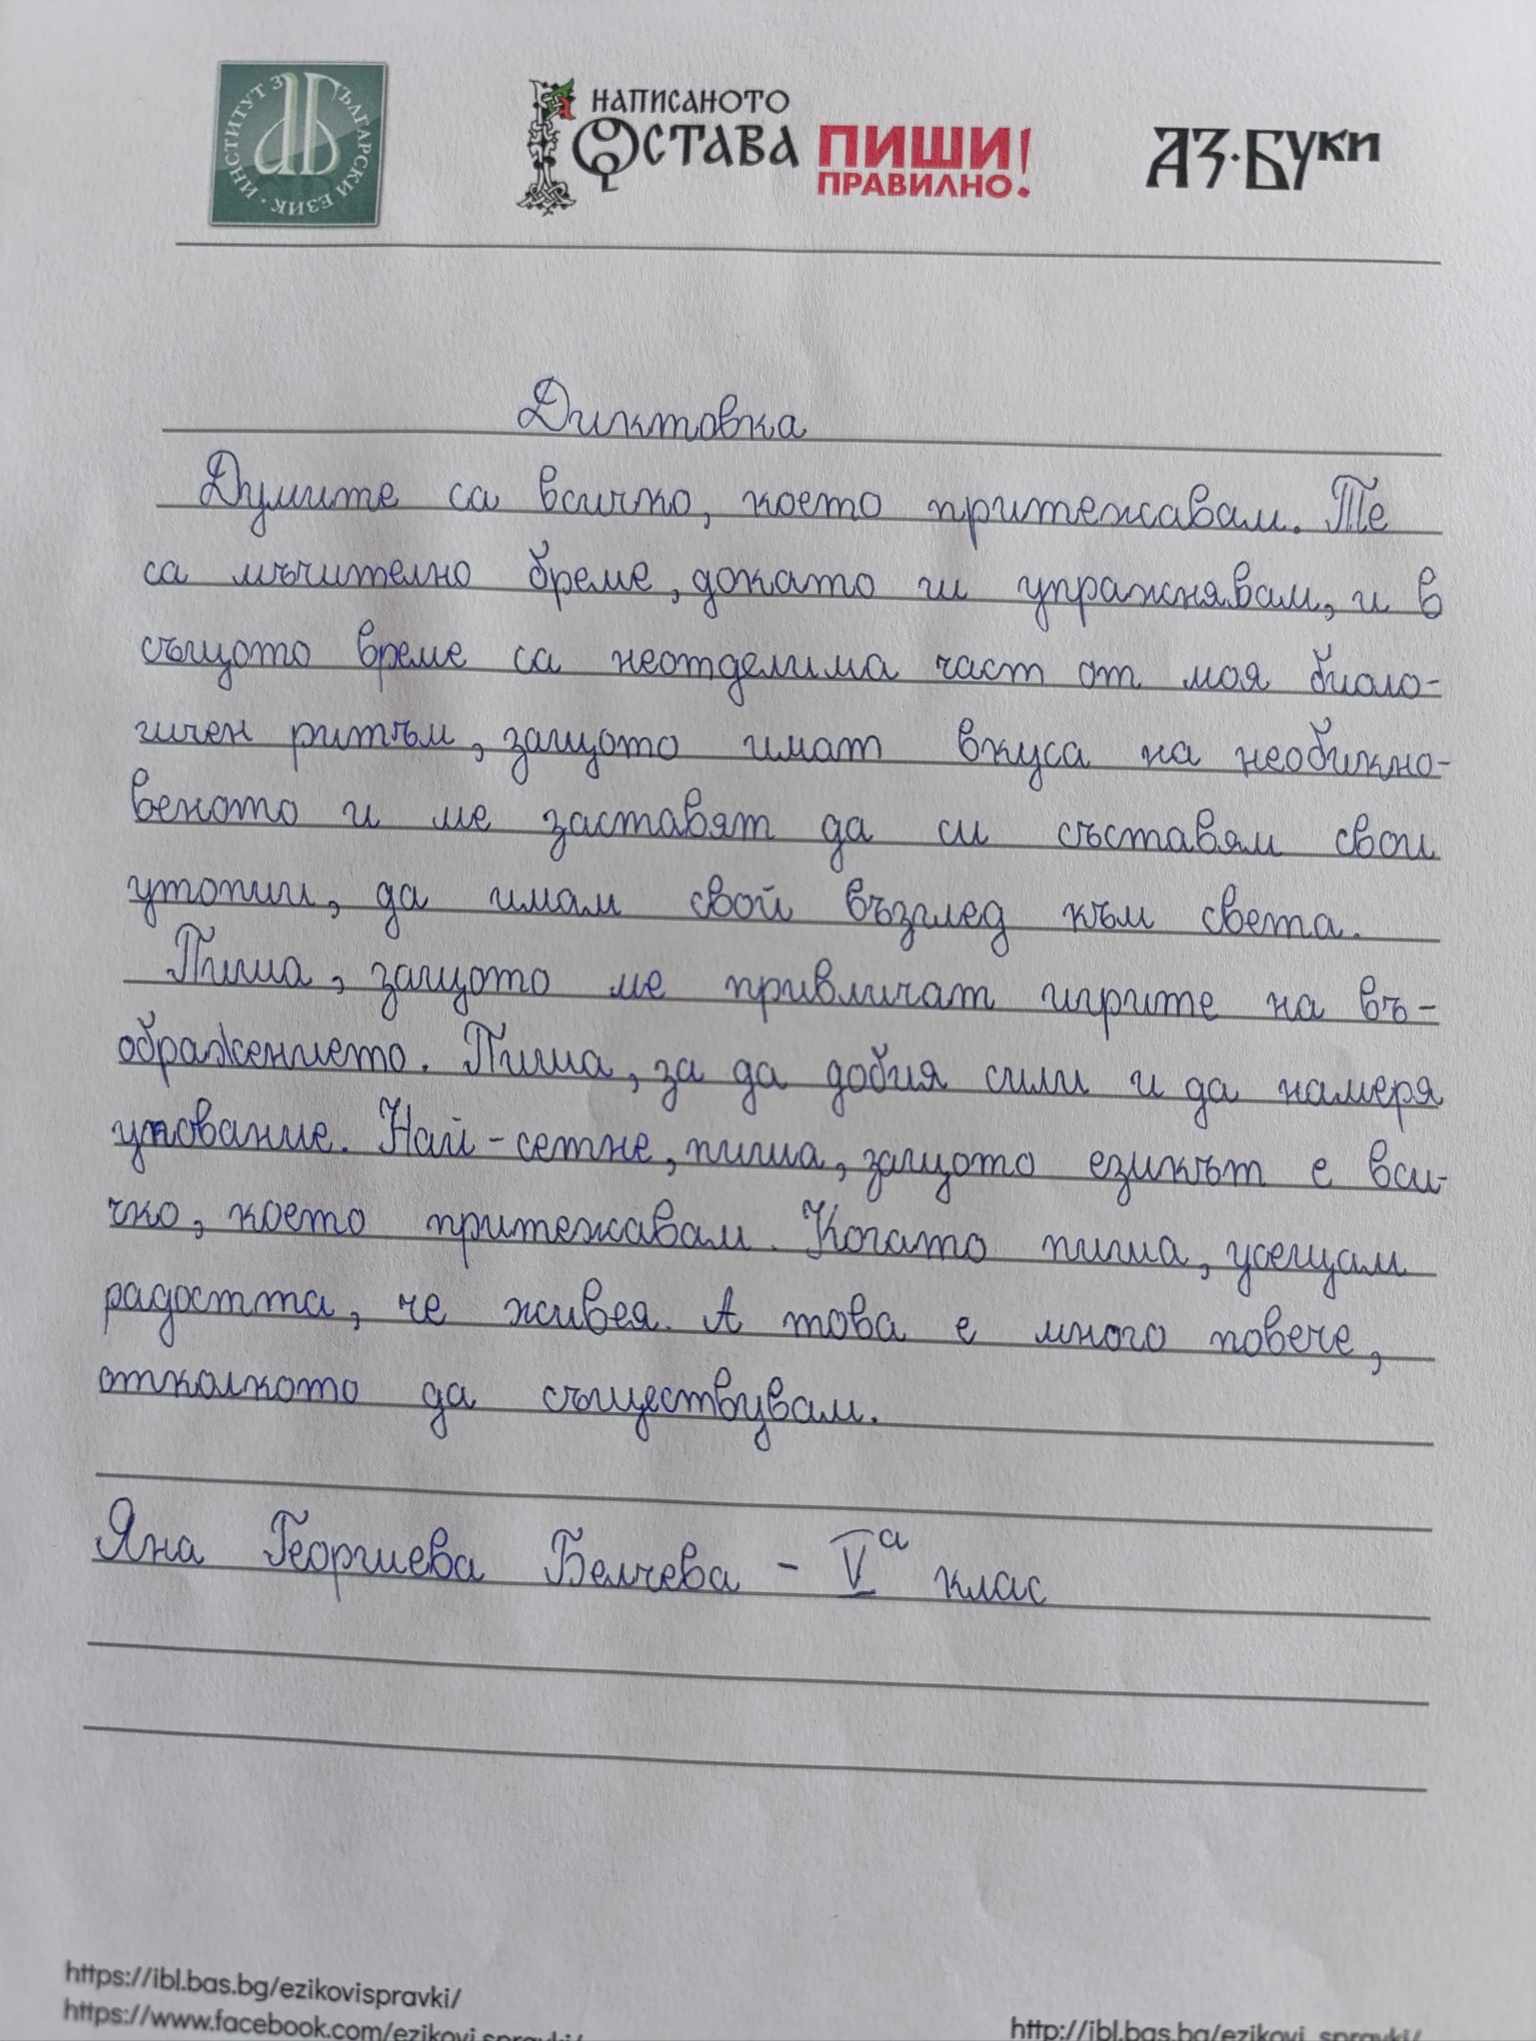 ИНСТИТУТ ЗА БЪЛГАРСКИ ЕЗИК
НАПИСАНОТО
ОСТАВА
ПИШИ!
ПРАВИЛНО.
АЗ·БУКИ
Диктовка
Думите са всичко, което притежавам. Те
са мъчително бреме, докато ги упражнявам, и в
същото време са неотделима част от моя биоло-
гичен ритъм, защото имат вкуса на необикно-
веното и ме заставят да си съставям свои
утопии, да имам свой възглед към света.
Пиша, защото ме привличат игрите на въ-
ображението. Пиша, за да добия сили и да намеря
упование. Най-сетне, пиша, защото езикът е вси-
чко, което притежавам. Когато пиша, усещам
радостта, че живея. А това е много повече,
отколкото да съществувам.
Яна Георгиева Белчева - V а клас
https://ibl.bas.bg/ezikovispravki/
https://www.facebook.com/ezikovi.spravki/
http://ibl.bas.bg/ezikovi_spravki/